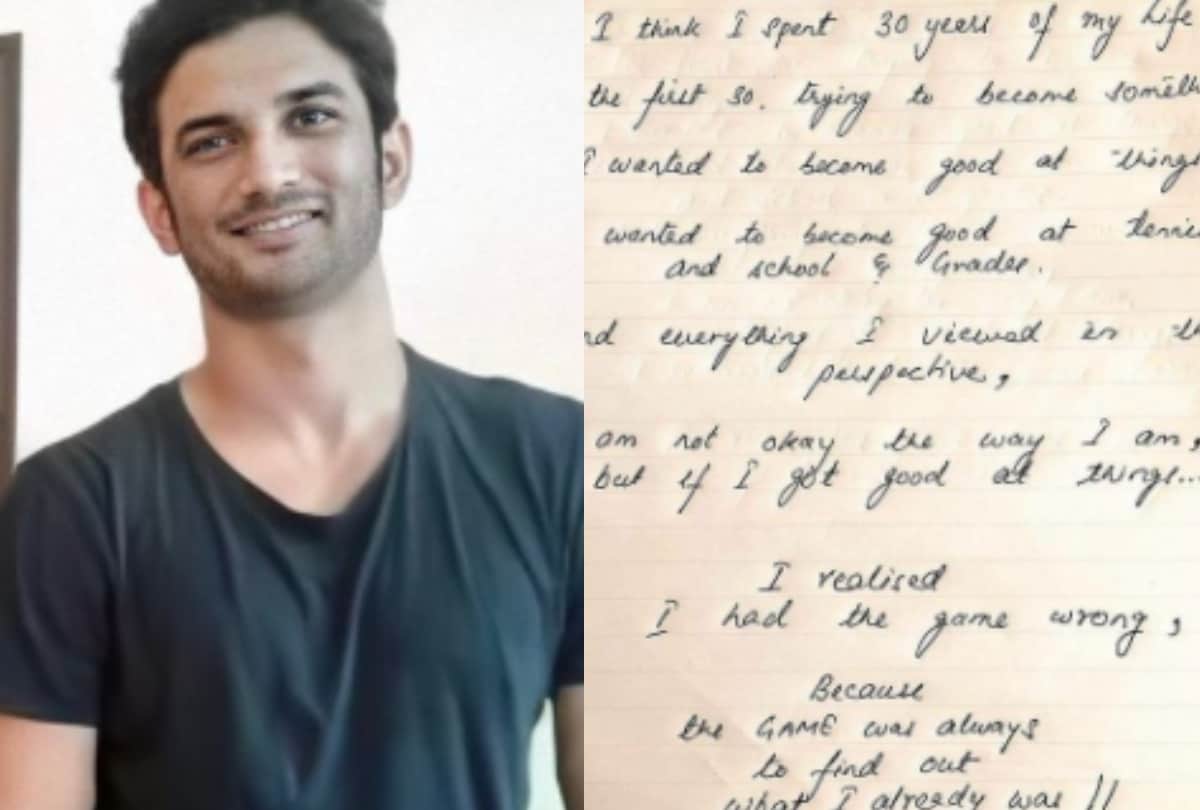 I think I spent 30 years of my life
the first 30. trying to become somethi
I wanted to become good at things
wanted to become good at tennis
and school & Grades.
nd everything I viewed in th
perspective,
am not okay the way I am,
but if I got good at things...
I realised
I had the game wrong,
Because
the GAME was always
to find out
what I already was !!